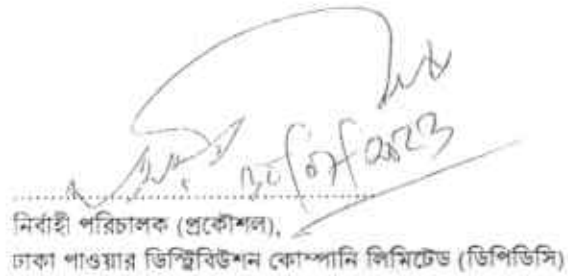 নির্বাহী পরিচালক (প্রকৌশল),
ঢাকা পাওয়ার ডিস্ট্রিবিউশন কোম্পানি লিমিটেড (ডিপিডিসি)